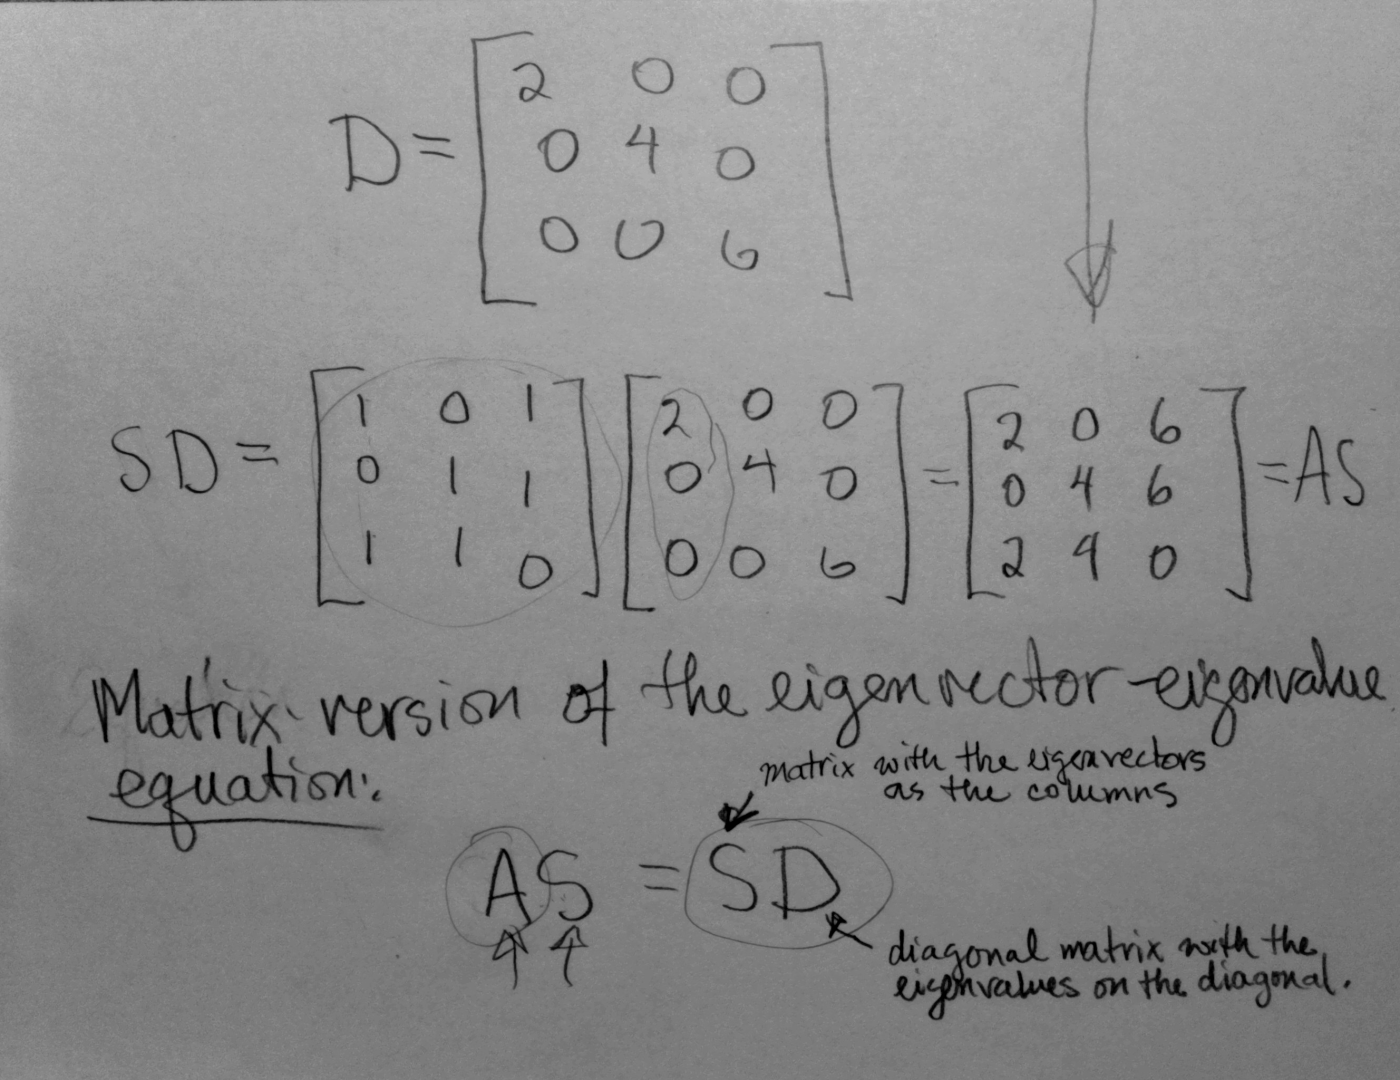 D = [ 2 0 0
0 4 0
0 0 6 ]
SD = [ 1 0 1
0 1 1
1 1 0 ] [ 2 0 0
0 4 0
0 0 6 ] = [ 2 0 6
0 4 6
2 4 0 ] = AS
Matrix version of the eigenvector-eigenvalue
equation:
matrix with the eigenvectors
as the columns
AS = SD
diagonal matrix with the
eigenvalues on the diagonal.